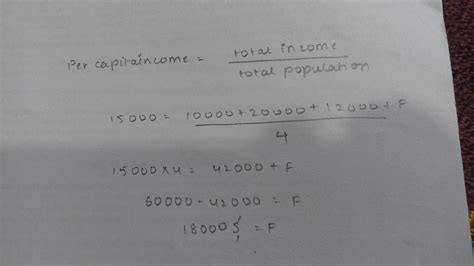 Per capitaincome = total income / total population
15000 = 10000+20000+12000+F / 4
15000×4 = 42000+F
60000-42000 = F
18000 $ = F